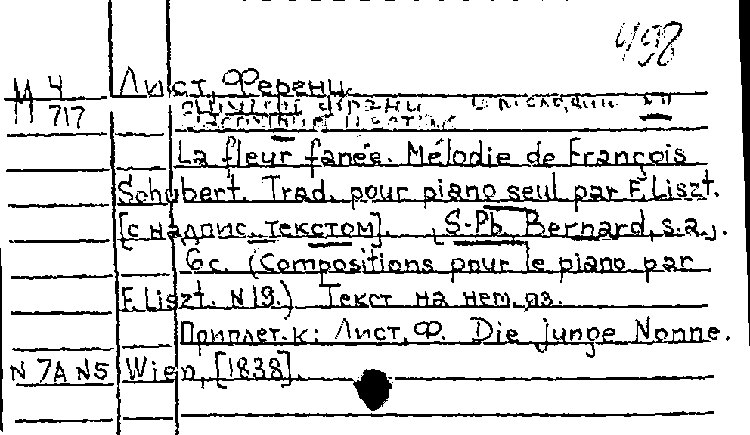 498
М 4 Лист, Ференц.
П 717
La fleur fanée. Mélodie de François
Schubert. Trad. pour piano seul par F. Liszt.
[с надпис. текстом]. [S-Pb, Bernard, s.a.].
6 с. (Compositions pour le piano par
F. Liszt. N 19.) Текст на нем. яз.
Приплет. к: Лист, Ф. Die junge Nonne.
N 7A N5 Wien, [1838].